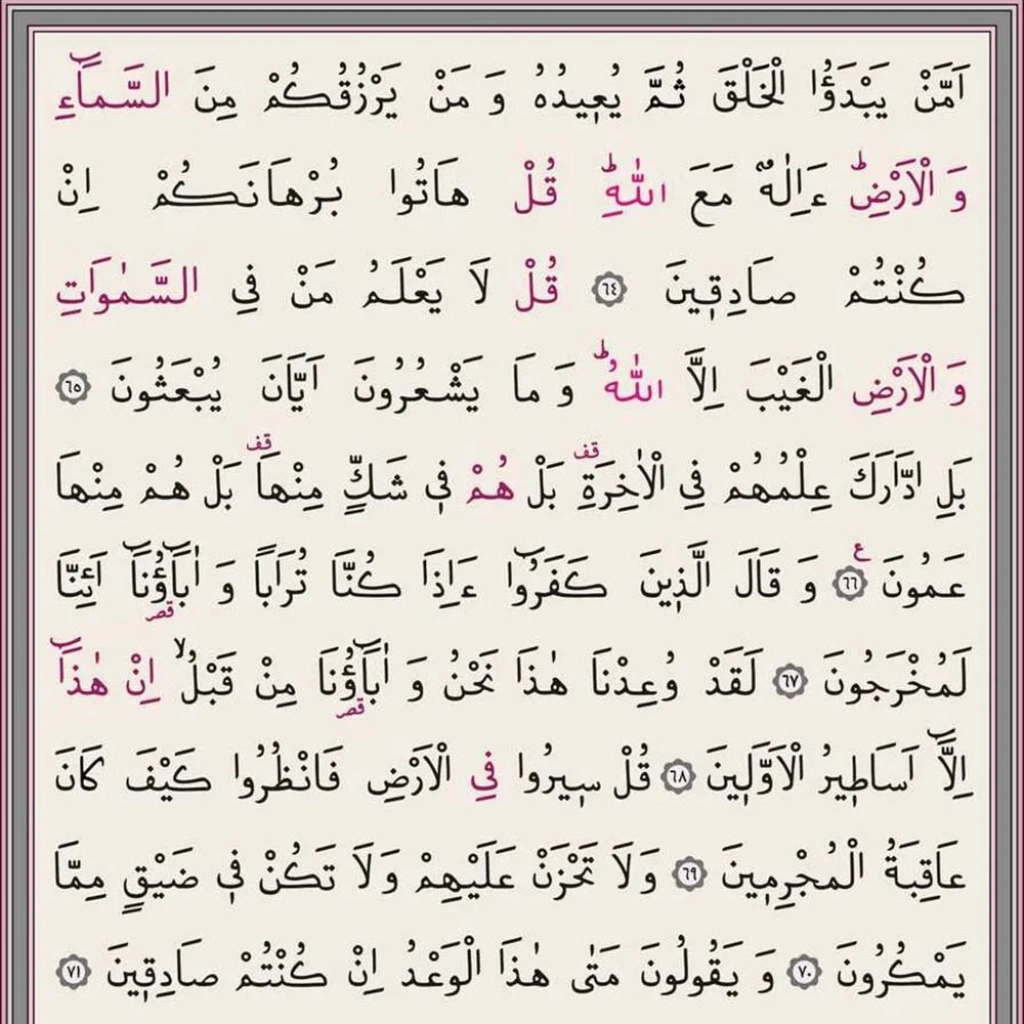 اَمَّنْ يَبْدَؤُا الْخَلْقَ ثُمَّ يُعٖيدُهُ وَ مَنْ يَرْزُقُكُمْ مِنَ السَّمَٓاءِ
وَ الْاَرْضِؕ ءَاِلٰهٌ مَعَ اللّٰهِؕ قُلْ هَاتُوا بُرْهَانَكُمْ اِنْ
كُنْتُمْ صَادِقٖينَ ٦٤ قُلْ لَا يَعْلَمُ مَنْ فِى السَّمٰوَاتِ
وَ الْاَرْضِ الْغَيْبَ اِلَّا اللّٰهُؕ وَ مَا يَشْعُرُونَ اَيَّانَ يُبْعَثُونَ ٦٥
بَلِ ادَّارَكَ عِلْمُهُمْ فِى الْاٰخِرَةِ قف بَلْ هُمْ فٖى شَكٍّ مِنْهَا قف بَلْ هُمْ مِنْهَا
عَمُونَ ع ٦٦ وَ قَالَ الَّذٖينَ كَفَرُٓوا ءَاِذَا كُنَّا تُرَابًا وَ اٰبَٓاؤُنَٓا قصر اَئِنَّا
لَمُخْرَجُونَ ٦٧ لَقَدْ وُعِدْنَا هٰذَا نَحْنُ وَ اٰبَٓاؤُنَا قصر مِنْ قَبْلُۙ اِنْ هٰذَٓا
اِلَّٓا اَسَاطٖيرُ الْاَوَّلٖينَ ٦٨ قُلْ سٖيرُوا فِى الْاَرْضِ فَانْظُرُوا كَيْفَ كَانَ
عَاقِبَةُ الْمُجْرِمٖينَ ٦٩ وَلَا تَحْزَنْ عَلَيْهِمْ وَلَا تَكُنْ فٖى ضَيْقٍ مِمَّا
يَمْكُرُونَ ٧٠ وَ يَقُولُونَ مَتٰى هٰذَا الْوَعْدُ اِنْ كُنْتُمْ صَادِقٖينَ ٧١